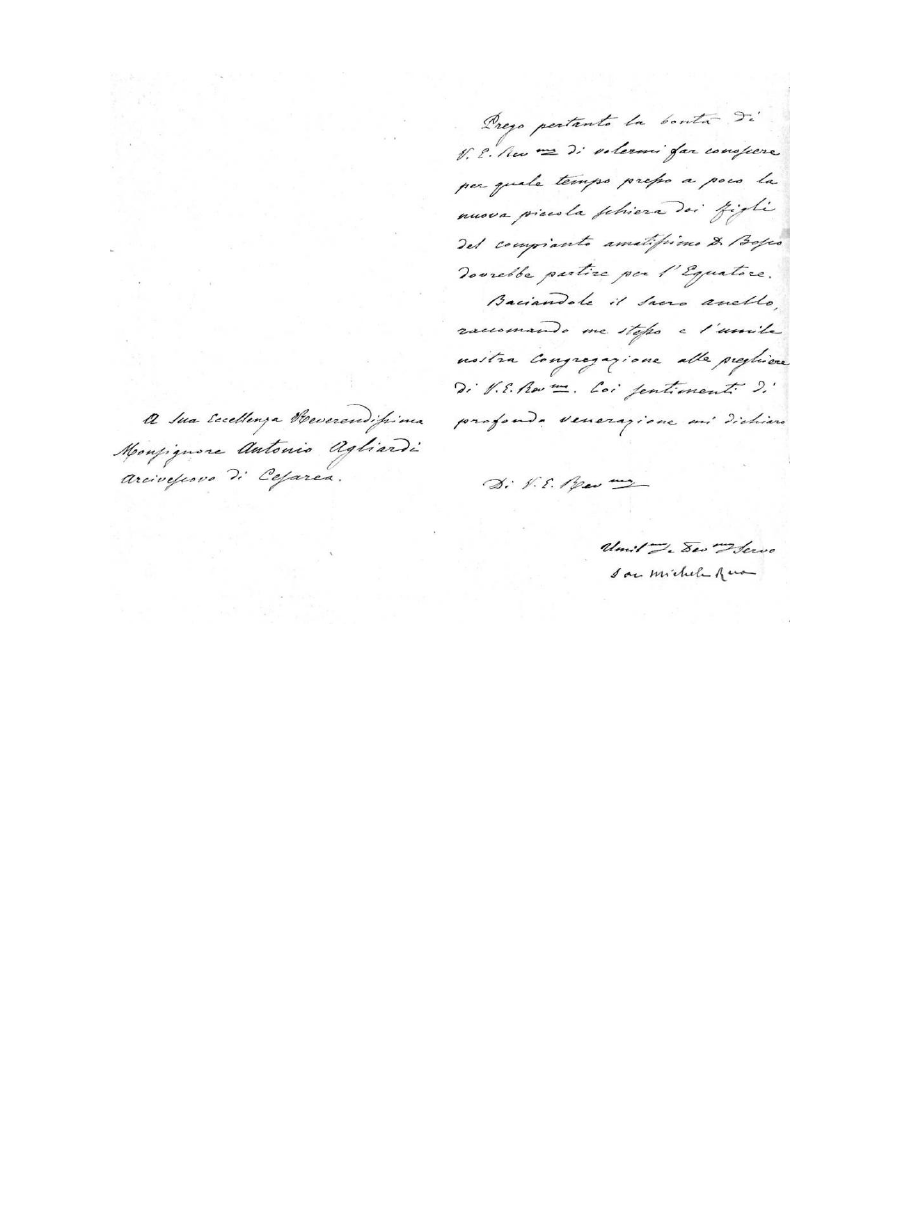 Prego pertanto la bontà di
V. E. Rev ma di volermi far conoscere
per quale tempo presso a poco la
nuova piccola schiera dei figli
del compianto amatissimo D. Bosco
dovrebbe partire per l'Equatore.
Baciandole il sacro anello,
raccomando me stesso e l'umile
nostra Congregazione alle preghiere
di V. E. Rev ma. Coi sentimenti di
profonda venerazione mi dichiaro
Di V. E. Rev ma
Umil mo e Dev mo Servo
Sac Michele Rua
A Sua Eccellenza Reverendissima
Monsignore Antonio Agliardi
Arcivescovo di Cesarea.